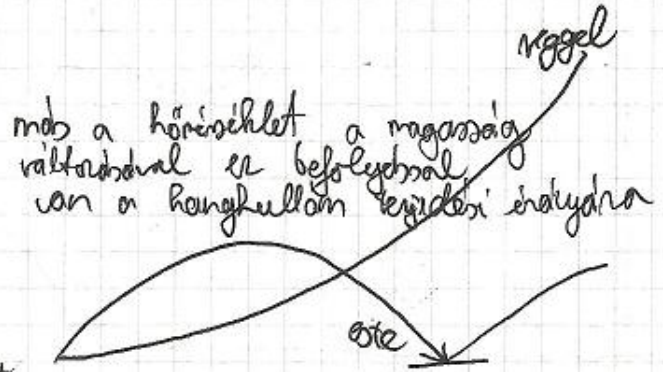 reggel
más a hőmérséklet a magasság
változásával ez befolyással
van a hanghullám terjedési irányára
este